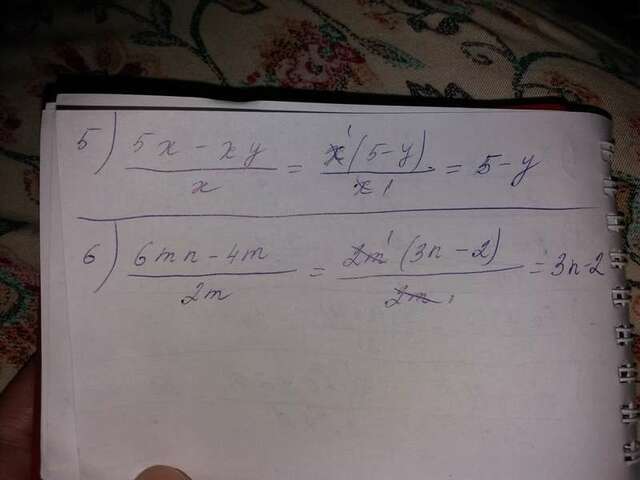 5) (5x - xy)/x = (x(5-y))/x 1 = 5-y
6) (6mn - 4m)/2m = (2m(3n-2))/2m 1 = 3n-2